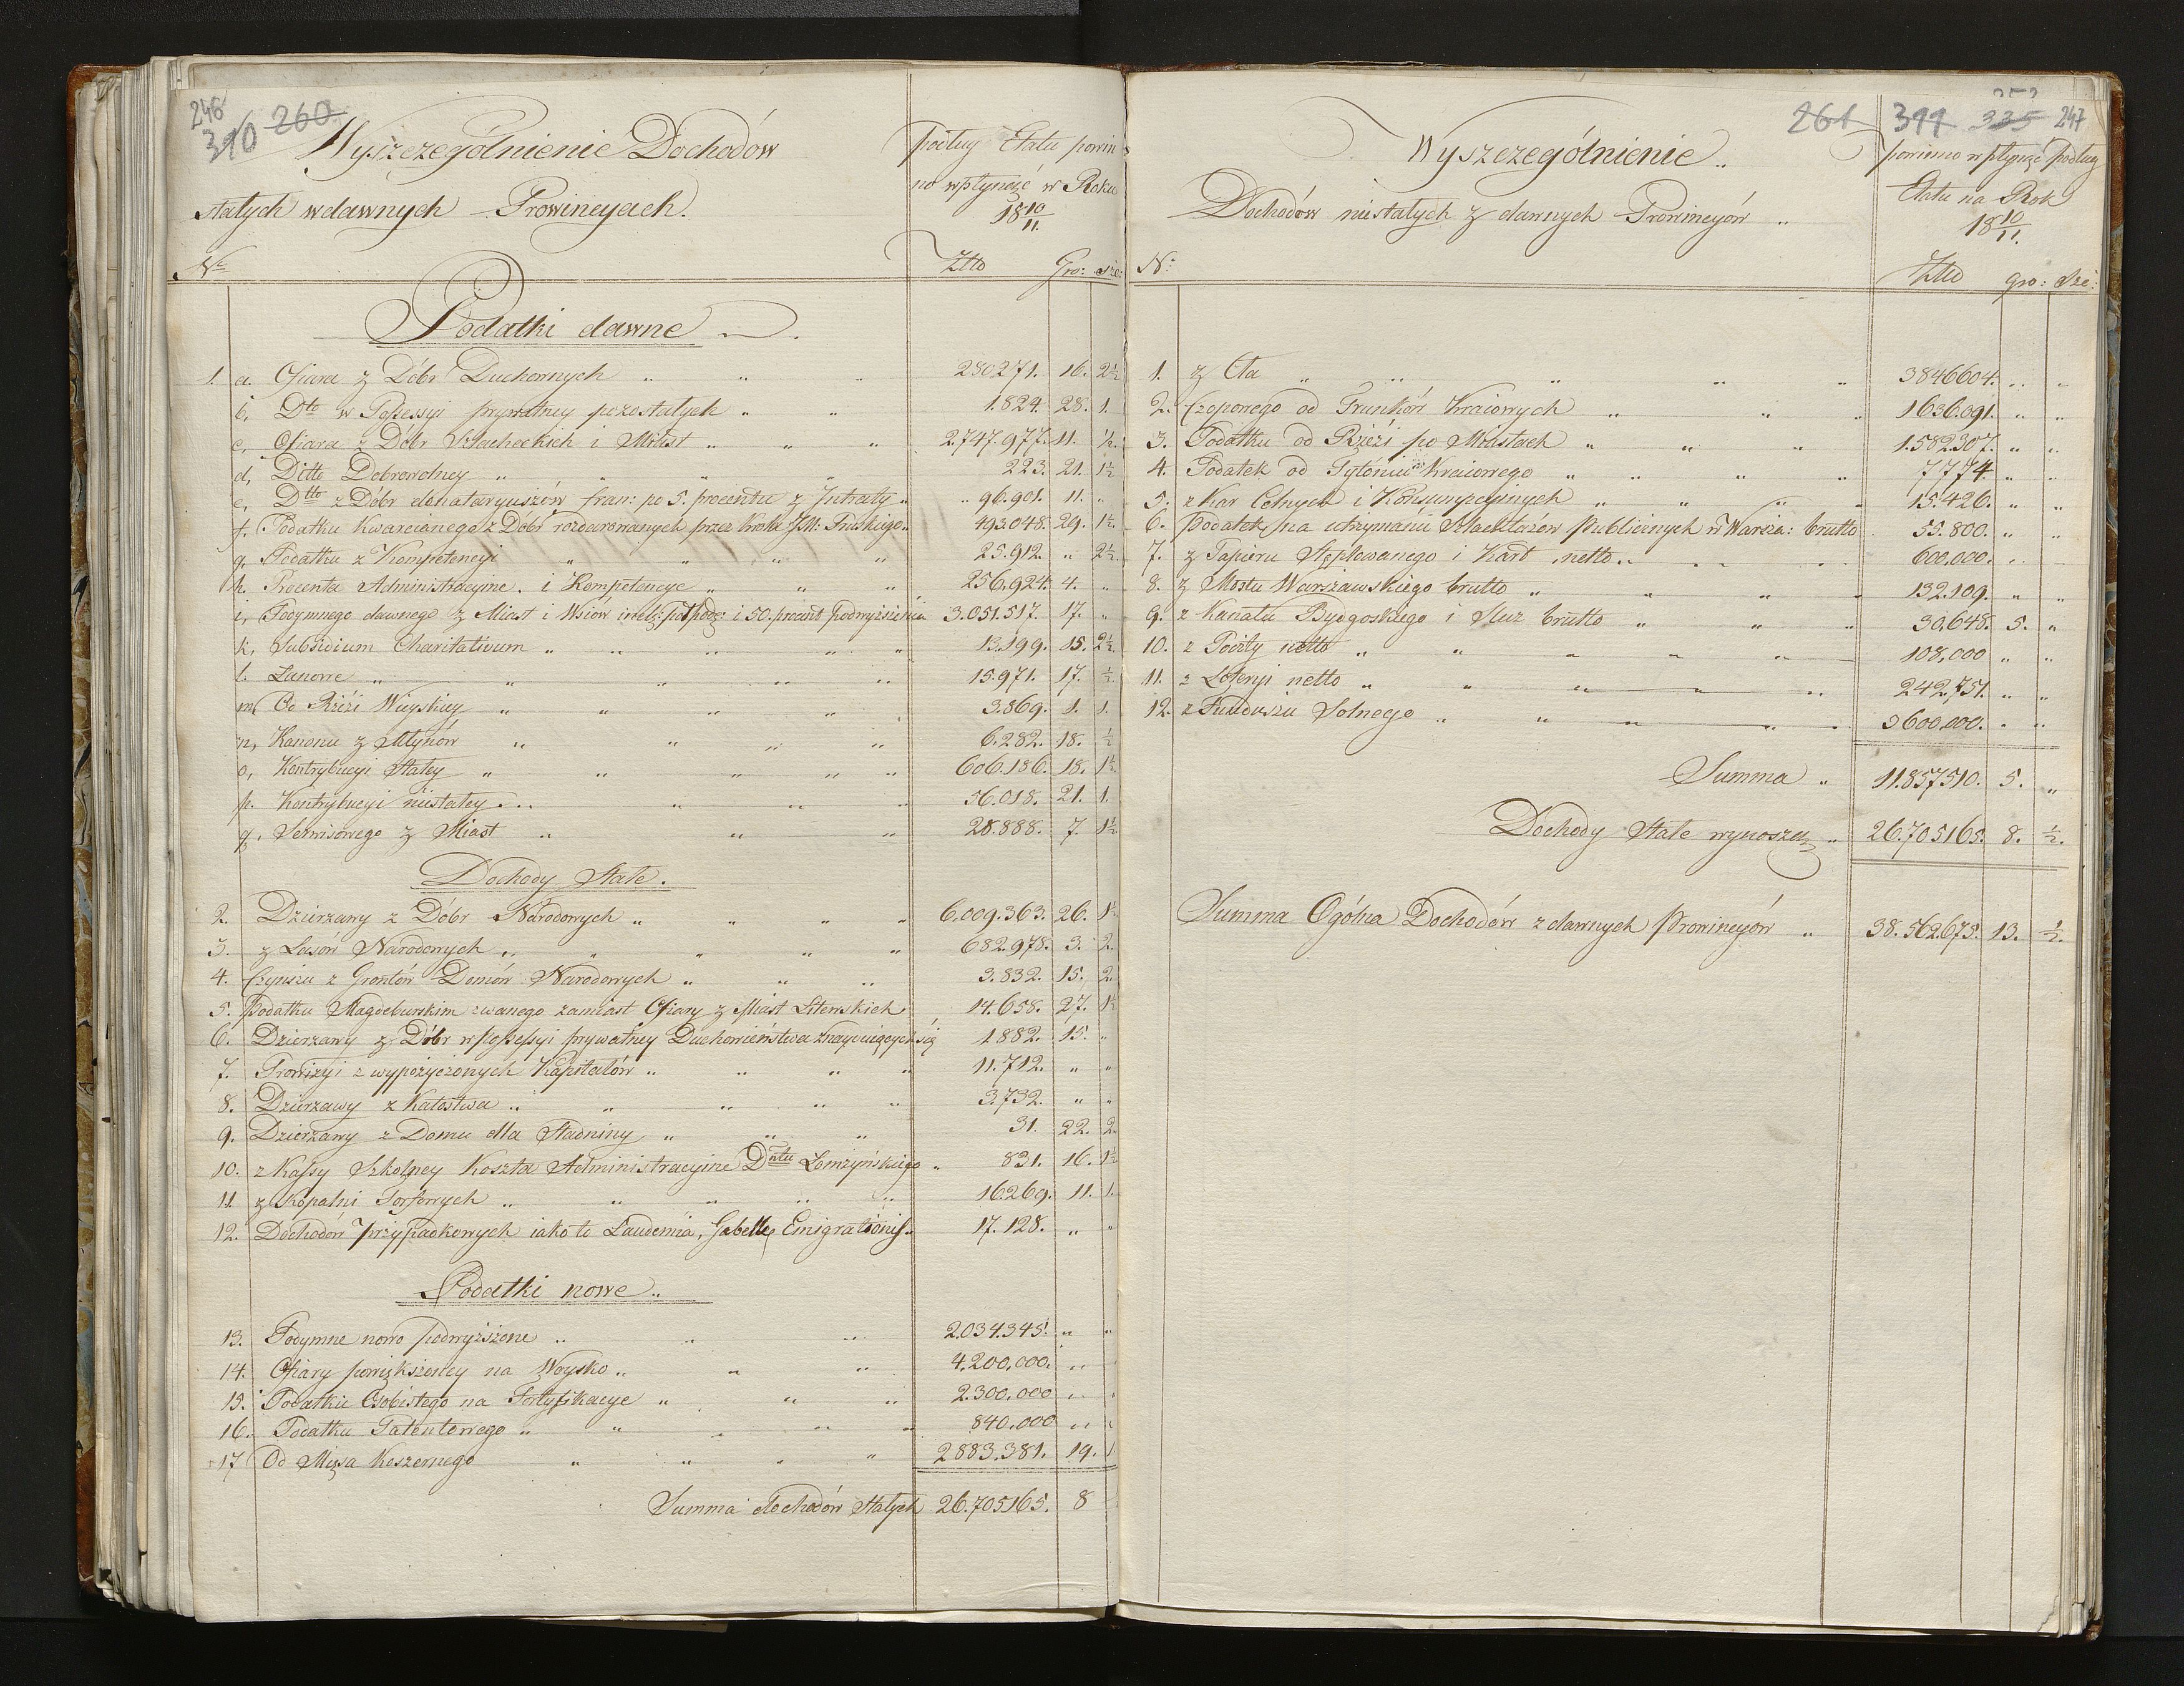 246
310 260
Wyszczególnienie Dochodów
stałych w dawnych Prowincyach.
podług Etatu powin
no wpłynąć w Roku
18 10/11.
No Złto Gro: sze:
Podatki dawne
1. a. Ofiara z Dóbr Duchownych „ „ „ 280271. 16. 2½
b, Dto w Possessyi prywatney pozostałych „ „ 1.824. 28. 1.
c, Ofiara z Dóbr Szlacheckich i Miast „ „ „ 2.747.977. 11. ½
d, Ditto Dobrowolney „ „ „ „ „ 223. 21. 1½
e, Dtto z Dóbr donataryuszów fran: po 5. procentu z Intraty „ „ 96.901. 11. „
f. Podatku Kwarcianego z Dóbr rozdarowanych przez Króla JM: Pruskiego „ 493.048. 29. 1½
g, Podatku z Kompetencyi „ „ „ „ 25.912. „ 2½
h. Procenta Administracyine i Kompetencye „ „ „ 256.924. 4. „
i, Podymnego dawnego z Miast i Wsiow incl: pół podz: i 50. procent podwyższenia 3.051.517. 17. „
k, Subsidium Charitativum „ „ „ „ „ 13.199. 15. 2½
l. Łanowe „ „ „ „ „ 15.971. 17. ½
m, Od Rzezi Wieyskiey „ „ „ „ 3.869. 1. 1.
n, Kanonu z Młynów „ „ „ „ 6.282. 18. ½
o, Kontrybucyi Stałey „ „ „ „ „ 606.186. 18. 1½
p. Kontrybucyi niestałey „ „ „ „ 56.018. 21. 1.
q, Serwisowego z Miast „ „ „ 28.888. 7. 1½
Dochody Stałe.
2. Dzierzawy z Dóbr Narodowych „ „ „ „ 6.009.363. 26. 1½
3. z Lasów Narodowych „ „ „ „ „ 682.978. 3. 2.
4. Czynszu z Grontów Domów Narodowych „ „ „ 3.832. 15. 2.
5. Podatku Magdeburskim zwanego zamiast Ofiary z Miast Litewskich 14.658. 27. 1½
6. Dzierzawy z Dóbr w Possessyi prywatney Duchowieństwa znayduiących się 1882. 15. „
7. Prowizyi z wypożyczonych Kapitałów „ „ „ „ 11.712. „ „
8. Dzierzawy z Katostwa „ „ „ „ „ 3732. „ „
9. Dzierzawy z Domu dla Stadniny „ „ „ 31. 22. 2.
10. z Kassy Szkolney Koszta Administracyine Dntu Łomżyńskiego „ 831. 16. 1½
11. z Kopalni Torfowych „ „ „ „ „ 16269. 11. 1.
12. Dochodów przypadkowych iako to Laudemia, Gabelle, Emigrationis „ 17.128. „ „
Podatki nowe „
13. Podymne nowo podwyższone „ „ „ 2.034.345. „ „
14. Ofiary powiększoney na Woysko „ „ „ 4.200,000. „
15. Podatku Osobistego na Fortyfikacye „ „ „ 2.300.000 „
16. Podatku Patentowego „ „ „ „ „ 840.000 „
17 Od Mięsa Koszernego „ „ „ „ 2883.381. 19. 1.
Summa dochodów Stałych 26.705165. 8
261 311 335 247
Wyszczególnienie „
Dochodów niestałych z dawnych Prowincyów „
powinno wpłynąć podług
Etatu na Rok
18 10/11.
N: Złto gro: Sze:
1. z Cła „ „ „ „ „ 3846604. „ „
2. Czopowego od Trunków Kraiowych „ „ „ 1636.091. „ „
3. Podatku od Rzezi po Miastach „ „ „ „ 1.582.307. „ „
4. Podatek od Tytóniu Kraiowego „ „ „ „ 7774. „ „
5. z Kar Celnych i Konsumpcyinych „ „ „ „ 15.426. „ „
6. podatek na utrzymanie Szlachtuzów Publicznych w Warsza: brutto 55.800. „ „
7. z Papieru Stęplowanego i Kart, netto „ „ „ 600,000. „ „
8. z Mostu Warszawskiego brutto „ „ „ „ 132.109. „ „
9. z Kanału Bydgoskiego i Sluz brutto „ „ „ 30,648. 5. „
10. z Poczty netto „ „ „ „ „ 108,000 „ „
11. z Loteryi netto „ „ „ „ „ 242,751. „ „
12. z Funduszu Solnego „ „ „ „ „ 3600,000. „ „
Summa „ 11.857510. 5. „
Dochody Stałe wynoszą „ 26.705165. 8. ½.
Summa Ogólna Dochodów z dawnych Prowincyów „ 38.562.675. 13. ½.